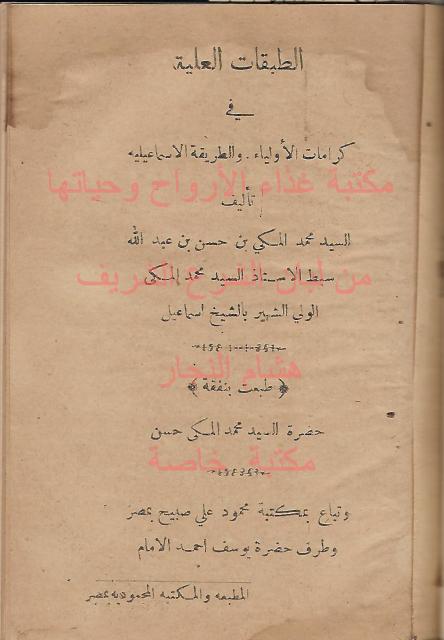 الطبقات العلية
في
كرامات الأولياء . والطريقة الاسماعيليه
مكتبة غذاء الأرواح وحياتها
تأليف
السيد محمد المكي بن حسن بن عبد الله
سبط الاستاذ السيد محمد المكى
من لبان الفرع الشريف
الولي الشهير بالشيخ اسماعيل
هشام النجار
﴿ طبعت بنفقة ﴾
حضرة السيد محمد المكى حسن
مكتبة خاصة
وتباع بمكتبة محمود علي صبيح بمصر
وطرف حضرة يوسف احمد الامام
المطبعه والمكتبه المحموديه بمصر